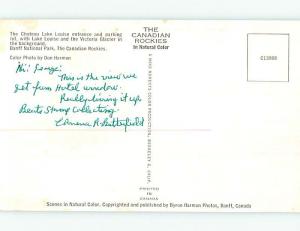 The Chateau Lake Louise entrance and parking
lot, with Lake Louise and the Victoria Glacier in
the background.
Banff National Park, The Canadian Rockies.
Color Photo by Don Harmon
THE
CANADIAN
ROCKIES
In Natural Color
Hi! George:
This is the view we
get from Hotel window.
Really living it up.
Beats Stamp Collecting.
Butterfield
MIKE ROBERTS COLOR PRODUCTION, BERKELEY 2, CALIF.
PRINTED
IN
CANADA
Scenes in Natural Color, Copyrighted and published by Byron Harmon Photos, Banff, Canada